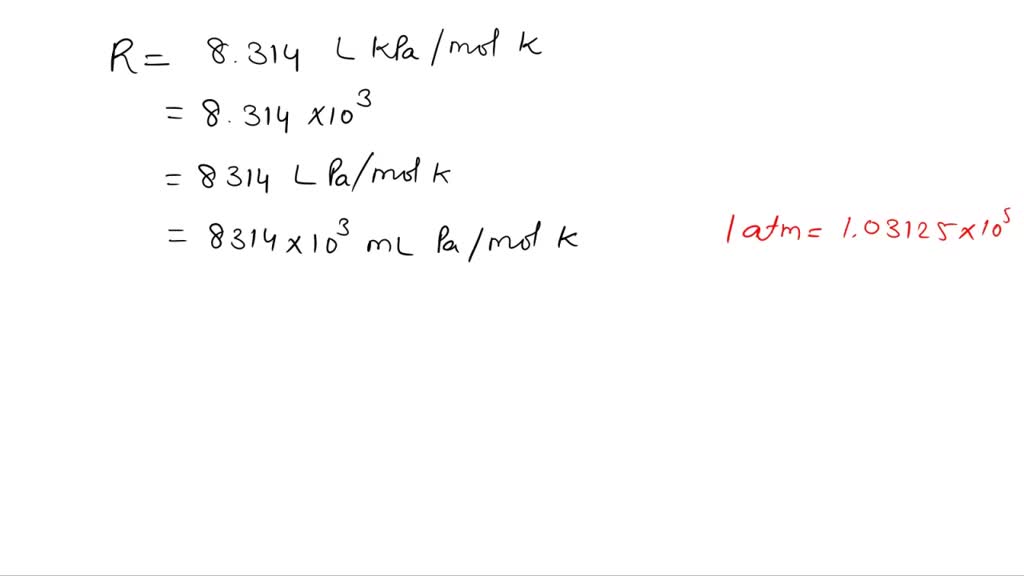 R = 8.314 L kPa/mol k
= 8.314 ×10³
= 8314 L Pa/mol k
= 8314 × 10³ mL Pa/mol k
1 atm = 1.03125 × 10⁵